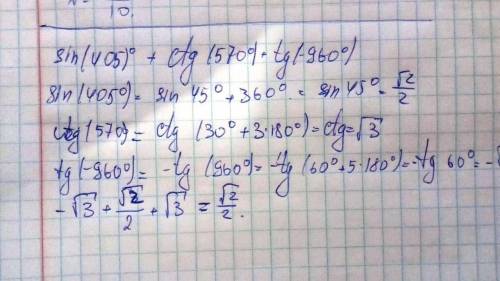 10.
sin(405)° + ctg(570°) + tg(-960°)
sin(405°) = sin 45° + 360° = sin 45° = √2/2
ctg(570) = ctg(30° + 3·180°) = ctg = √3
tg(-960°) = -tg(960°) = -tg(60° + 5·180°) = -tg 60° = -√
-√3 + √2/2 + √3 = √2/2.